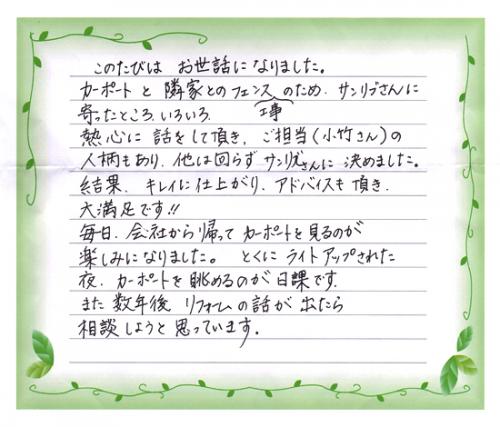 このたびは お世話になりました。
カーポートと 隣家とのフェンス工事のため、サンリブさんに
寄ったところ、いろいろ、
熱心に 話をして頂き、ご担当(小竹さん)の
人柄もあり、他は回らず サンリブさんに 決めました。
結果、キレイに仕上がり、アドバイスも 頂き、
大満足です!!
毎日、会社から帰って カーポートを見るのが
楽しみになりました。 とくに ライトアップされた
夜、カーポートを眺めるのが 日課です。
また 数年後 リフォームの話が 出たら
相談しようと 思っています。